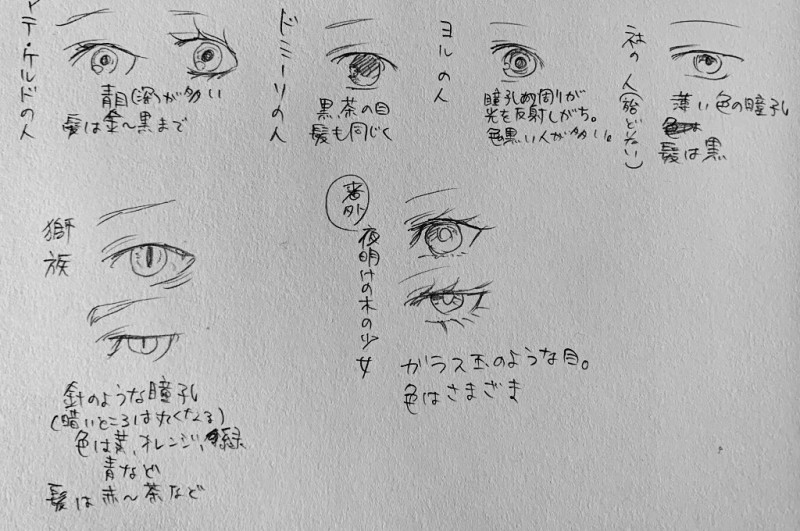 テ・ケルドの人
青目(深)が多い
髪は金〜黒まで
ドミーリの人
黒、茶の目
髪も同じく
ヨルの人
瞳孔の周りが
光を反射しがち。
色黒い人が多い。
社の人(殆どいない)
薄い色の瞳孔
髪は黒
獅族
針のような瞳孔
(暗いところは丸くなる)
色は黄、オレンジ、緑
青など
髪は赤〜茶など
番外
夜明けの木の少女
ガラス玉のような目。
色はさまざま